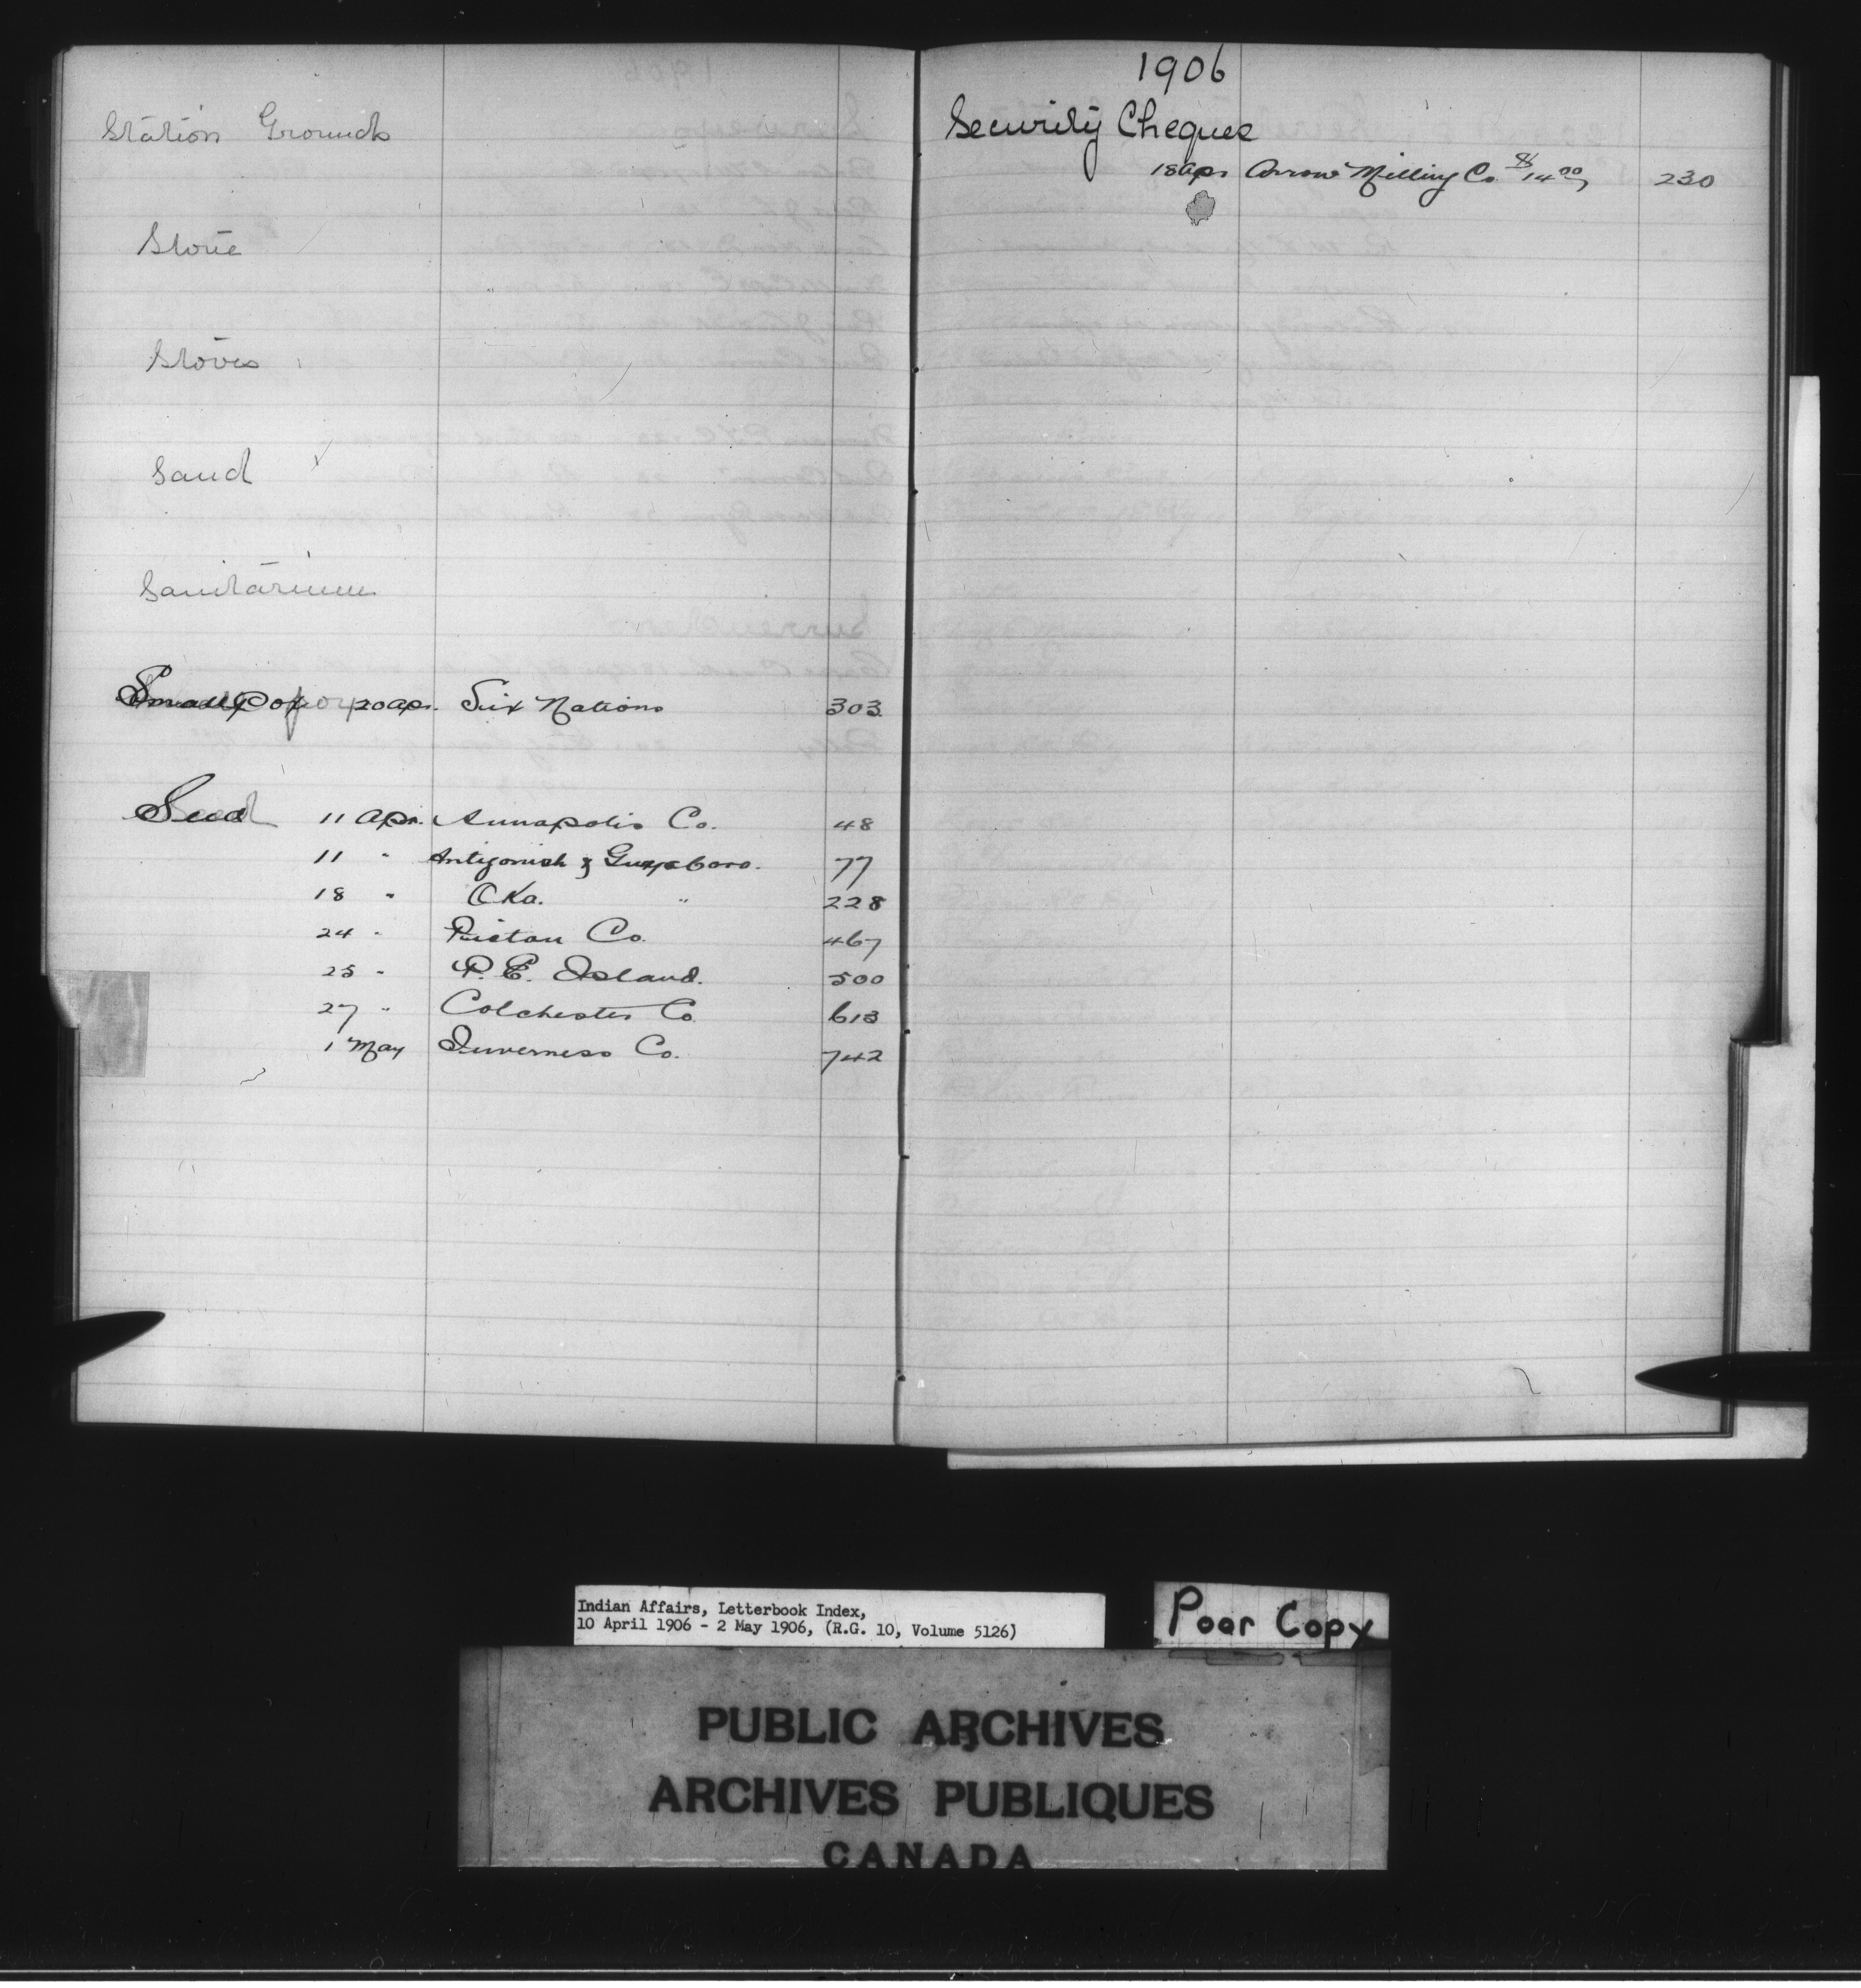 Station Grounds
Stone
Stoves
Sand
Sanitarium
Small Pox 20 Apr. Six Nations 303
Seed 11 Apr. Annapolis Co. 48
11 " Antigonish & Guysboro. 77
18 " Oka. " 228
24 " Pictou Co. 467
25 " P. E. Island. 500
27 " Colchester Co. 613
1 May Inverness Co. 742
1906
Security Cheques
18 Apr Arrow Milling Co. $14.00 230
Indian Affairs, Letterbook Index,
10 April 1906 - 2 May 1906, (R.G. 10, Volume 5126)
Poor Copy
PUBLIC ARCHIVES
ARCHIVES PUBLIQUES
CANADA